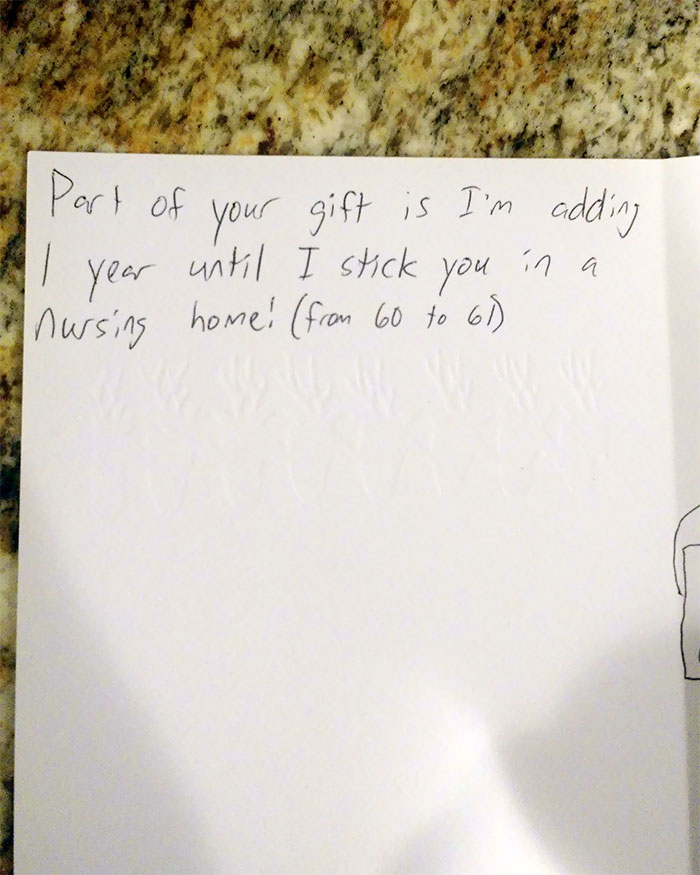 Part of your gift is I'm adding
1 year until I stick you in a
nursing home! (from 60 to 61)